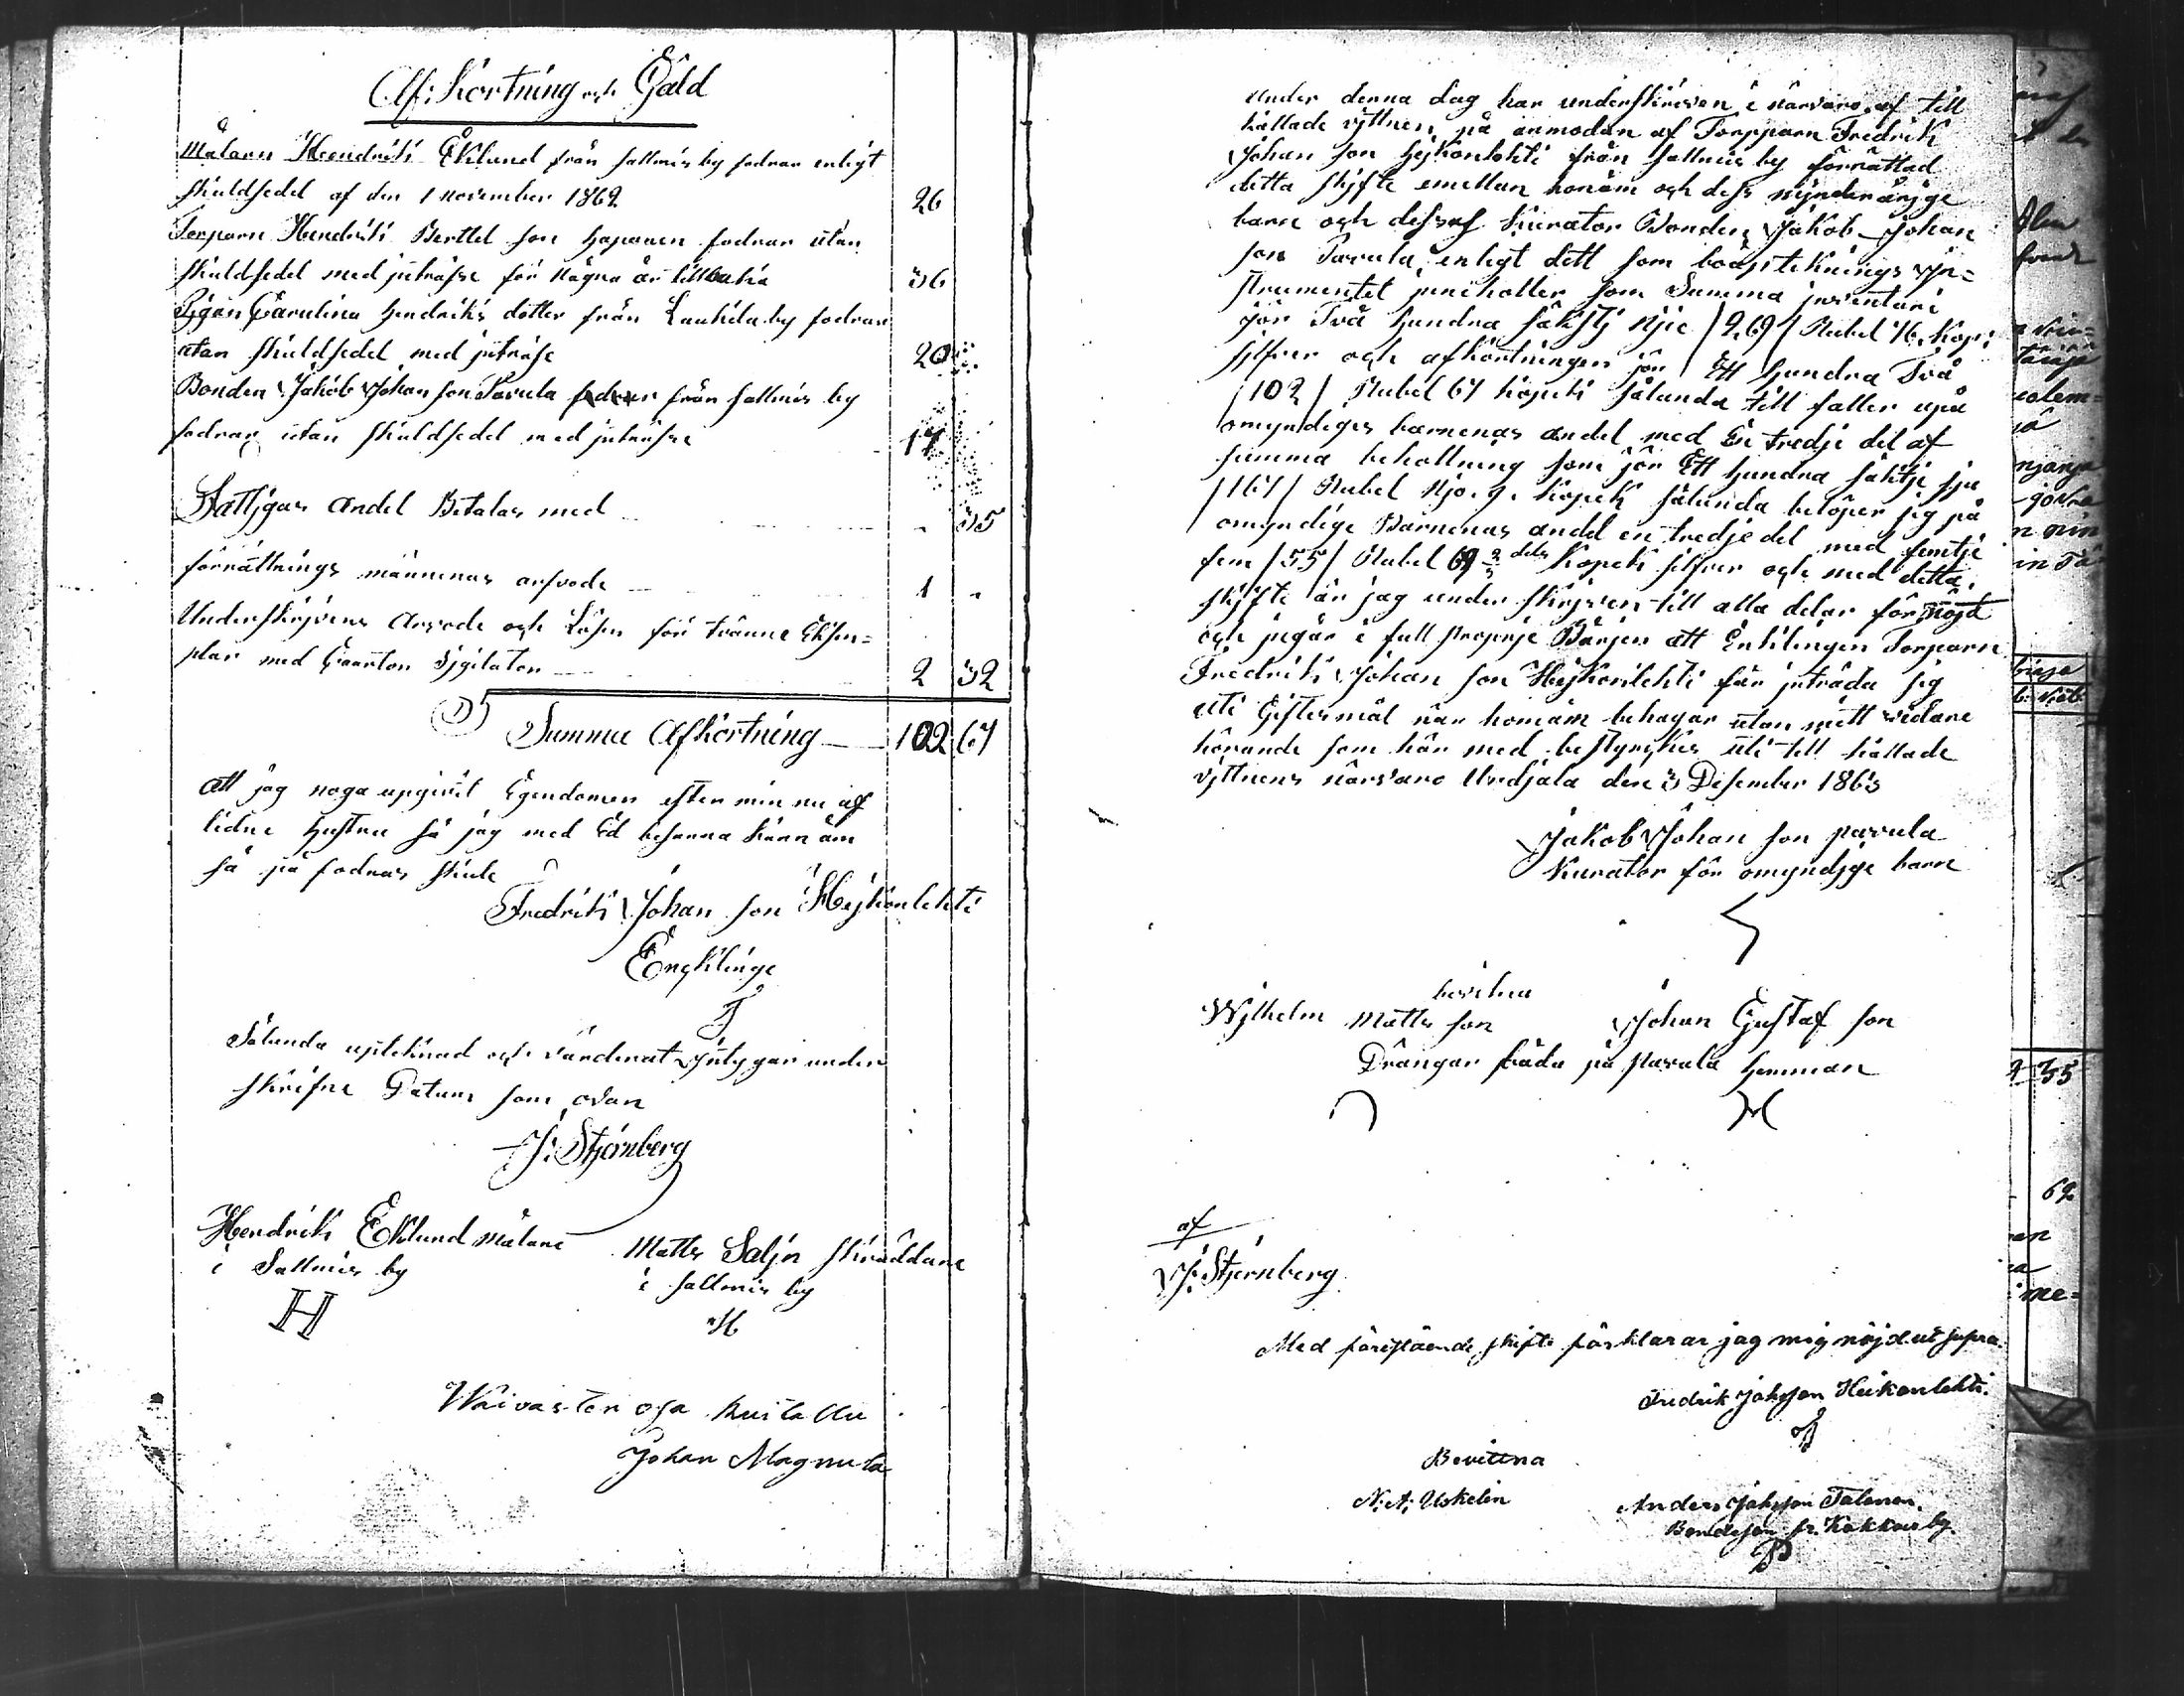 Af:kortning och Gäld
Målarn Hendrik Eklund från sallmis by fodrar enligt
skuldsedel af den 1 november 1862 26
Torparn Hendrik Berttel son Haponen fodrar utan
skuldsedel med jnträsse för några år tillbaka 36
Pigan Carulina Hendriks dotter från Laukila by fodrar
utan skuldsedel med jnträse 20
Bonden Jakob Johan son Pavula från sallmis by
fodrar utan skuldsedel med jnträsse 17
Fattjgas Andel Betalas med - 35
förrättnings männenas arfvode 1 -
Underskrjvens Arvode och Lösen för tvänne Eksem=
plar med Caarton Sjgilaton 2 32
Summa Afkortning 102 67
Att jag noga upgivit Egendomen efter min nu af
lidne Hustru så jag med Ed besanna kann äm
så på fodras skule
Fredrik Johan son Hejkonlehti
Engklinge
Sålunda upteknad och värderat Jntygar under
skrifne Datum som ovan
J: Stjernberg
Hendrik Eklund målare Matts Saljn skräddare
i Sallmis by i sallmis by
H
Waivasten osa kuitattu
Johan Magnula
Under denna dag har underskreven i närvaro af till
kallade vjttnen på anmodan af Torpparn Fredrik
Johan son Hejkonlehti från sallmis by förrättad
detta skjfte emellan honäm och dess mjnderårjge
barn och dess af Kurator Bonden Jakob Johan
son Pavula, enligt dett som boupteknings jn=
strumentet jnnehåller som Summa jnventari
jör Två Hundra säkstj Njie /269/ Rubel 76 Kop:
silfver och afkortningen jör Ett Hundra Två
/102/ Rubel 67 kopek sålunda till faller upå
omyndiges barnenas andel med En tredje del af
summa behollning som jör Ett Hundra säktje sju
/167/ Rubel Njo. 9. Kopek sålunda belöper sig på
omyndige Barnenas andel en tredje del med femtje
fem /55/ Rubel 69 2/3 dels Kopek silfver och med detta
skjfte är jag under skrjven till alla delar för nöjd
och jngår i full Bärjen att Enklingen Torparn
Fredrik Johan son Hejkonlehti får jnträda sig
uti Giftermål när honäm behagar utan mitt vidare
hörande som här med bestyrkes uti till kallade
vjttnens närvaro Urdjala den 3 Desember 1863
Jakob Johan son pavula
Kurator för omyndjge barn
bevitna
Wjlhelm Matts son Johan Gustaf son
Drängar båda på Pavula Hemman
af
J: Stjernberg
Med förestående skifte förklarar jag mig nöjd ut supra.
Fredrik Johsson Heikonlehti.
Bevittna
N: A: Uskelin Anders Johsson Talonen
Bondeson fr. Kokkois by.